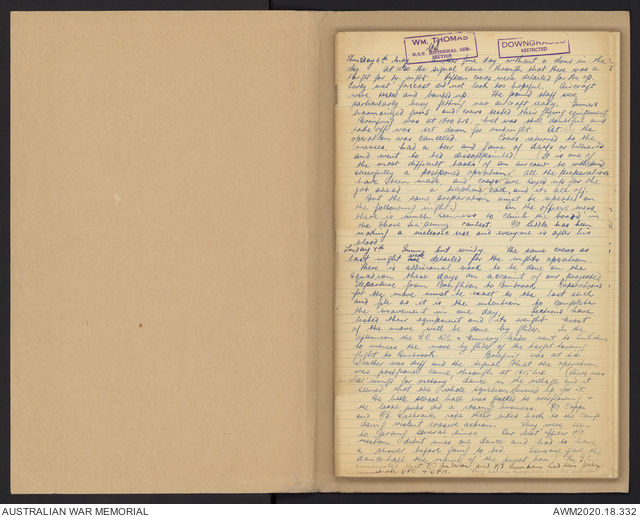 WM. THOMAS
O.C.C. HISTORICAL SUB-
SECTION
DOWNGRADED
RESTRICTED
Thursday 6th May Another fine day without a cloud in the
sky. At 1200 the signal came through that there was a
target for to-night. Fifteen crews were detailed for the op.
Early met forecast did not look too hopeful. Aircraft
were tested and bombed up. The ground staff were
particularly busy getting new aircraft ready. Gunners
harmonised guns and crews tested their flying equipment.
Briefing was at 1900 hrs. Met was still doubtful and
take off was set down for midnight. At the
operation was cancelled. Crews returned to the
messes, had a beer and game of darts or billiards
and went to bed dissappointed. It is one of
the most difficult tasks of an aircrew to withstand
cheerfully a postponed operation. All the preparations
have been made and crews are keyed up for the
job ahead - a telephone call, and it's all off.
But the same preparation must be repeated on
the following night. In the officers mess,
there is much keenness to climb the board in
the shove ha'penny contest. F/O Little has been
making a meteoric rise and everyone is after his
blood.
Friday 7th Sunny but windy. The same crews as
last night were detailed for the nights operation.
There is additional work to be done on the
squadron these days on account of our projected
departure from Breighton to Binbrook. Preparations
for the move must be exact to the last stick
and pile as it is the intention to complete
the movement in one day. Sections have
listed their equipment and its weight. Most
of the move will be done by glider. In the
afternoon the C.O. & Gunnery leader went to
to witness the move by glider of the
flight to Binbrook. Briefing was at
Weather was duff and the signal that the operation
was postponed came through at 1915 hrs. There was
an dance in the village and it
seemed that the whole squadron turned up for it.
The little school hall was packed to overflowing &
the local pubs did a roaring business. F/O
and F/S rode their bikes back to the camp
doing violent evasive action. They were seen
to several times. Our met officer F/O
debut into one dance and had to have
a shower before going to bed. Someone gave the
dance hall the name of the sweat box. The
announced that F/ and F/S have been
immediate DFC & DFM.
AUSTRALIAN WAR MEMORIAL
AWM2020.18.332